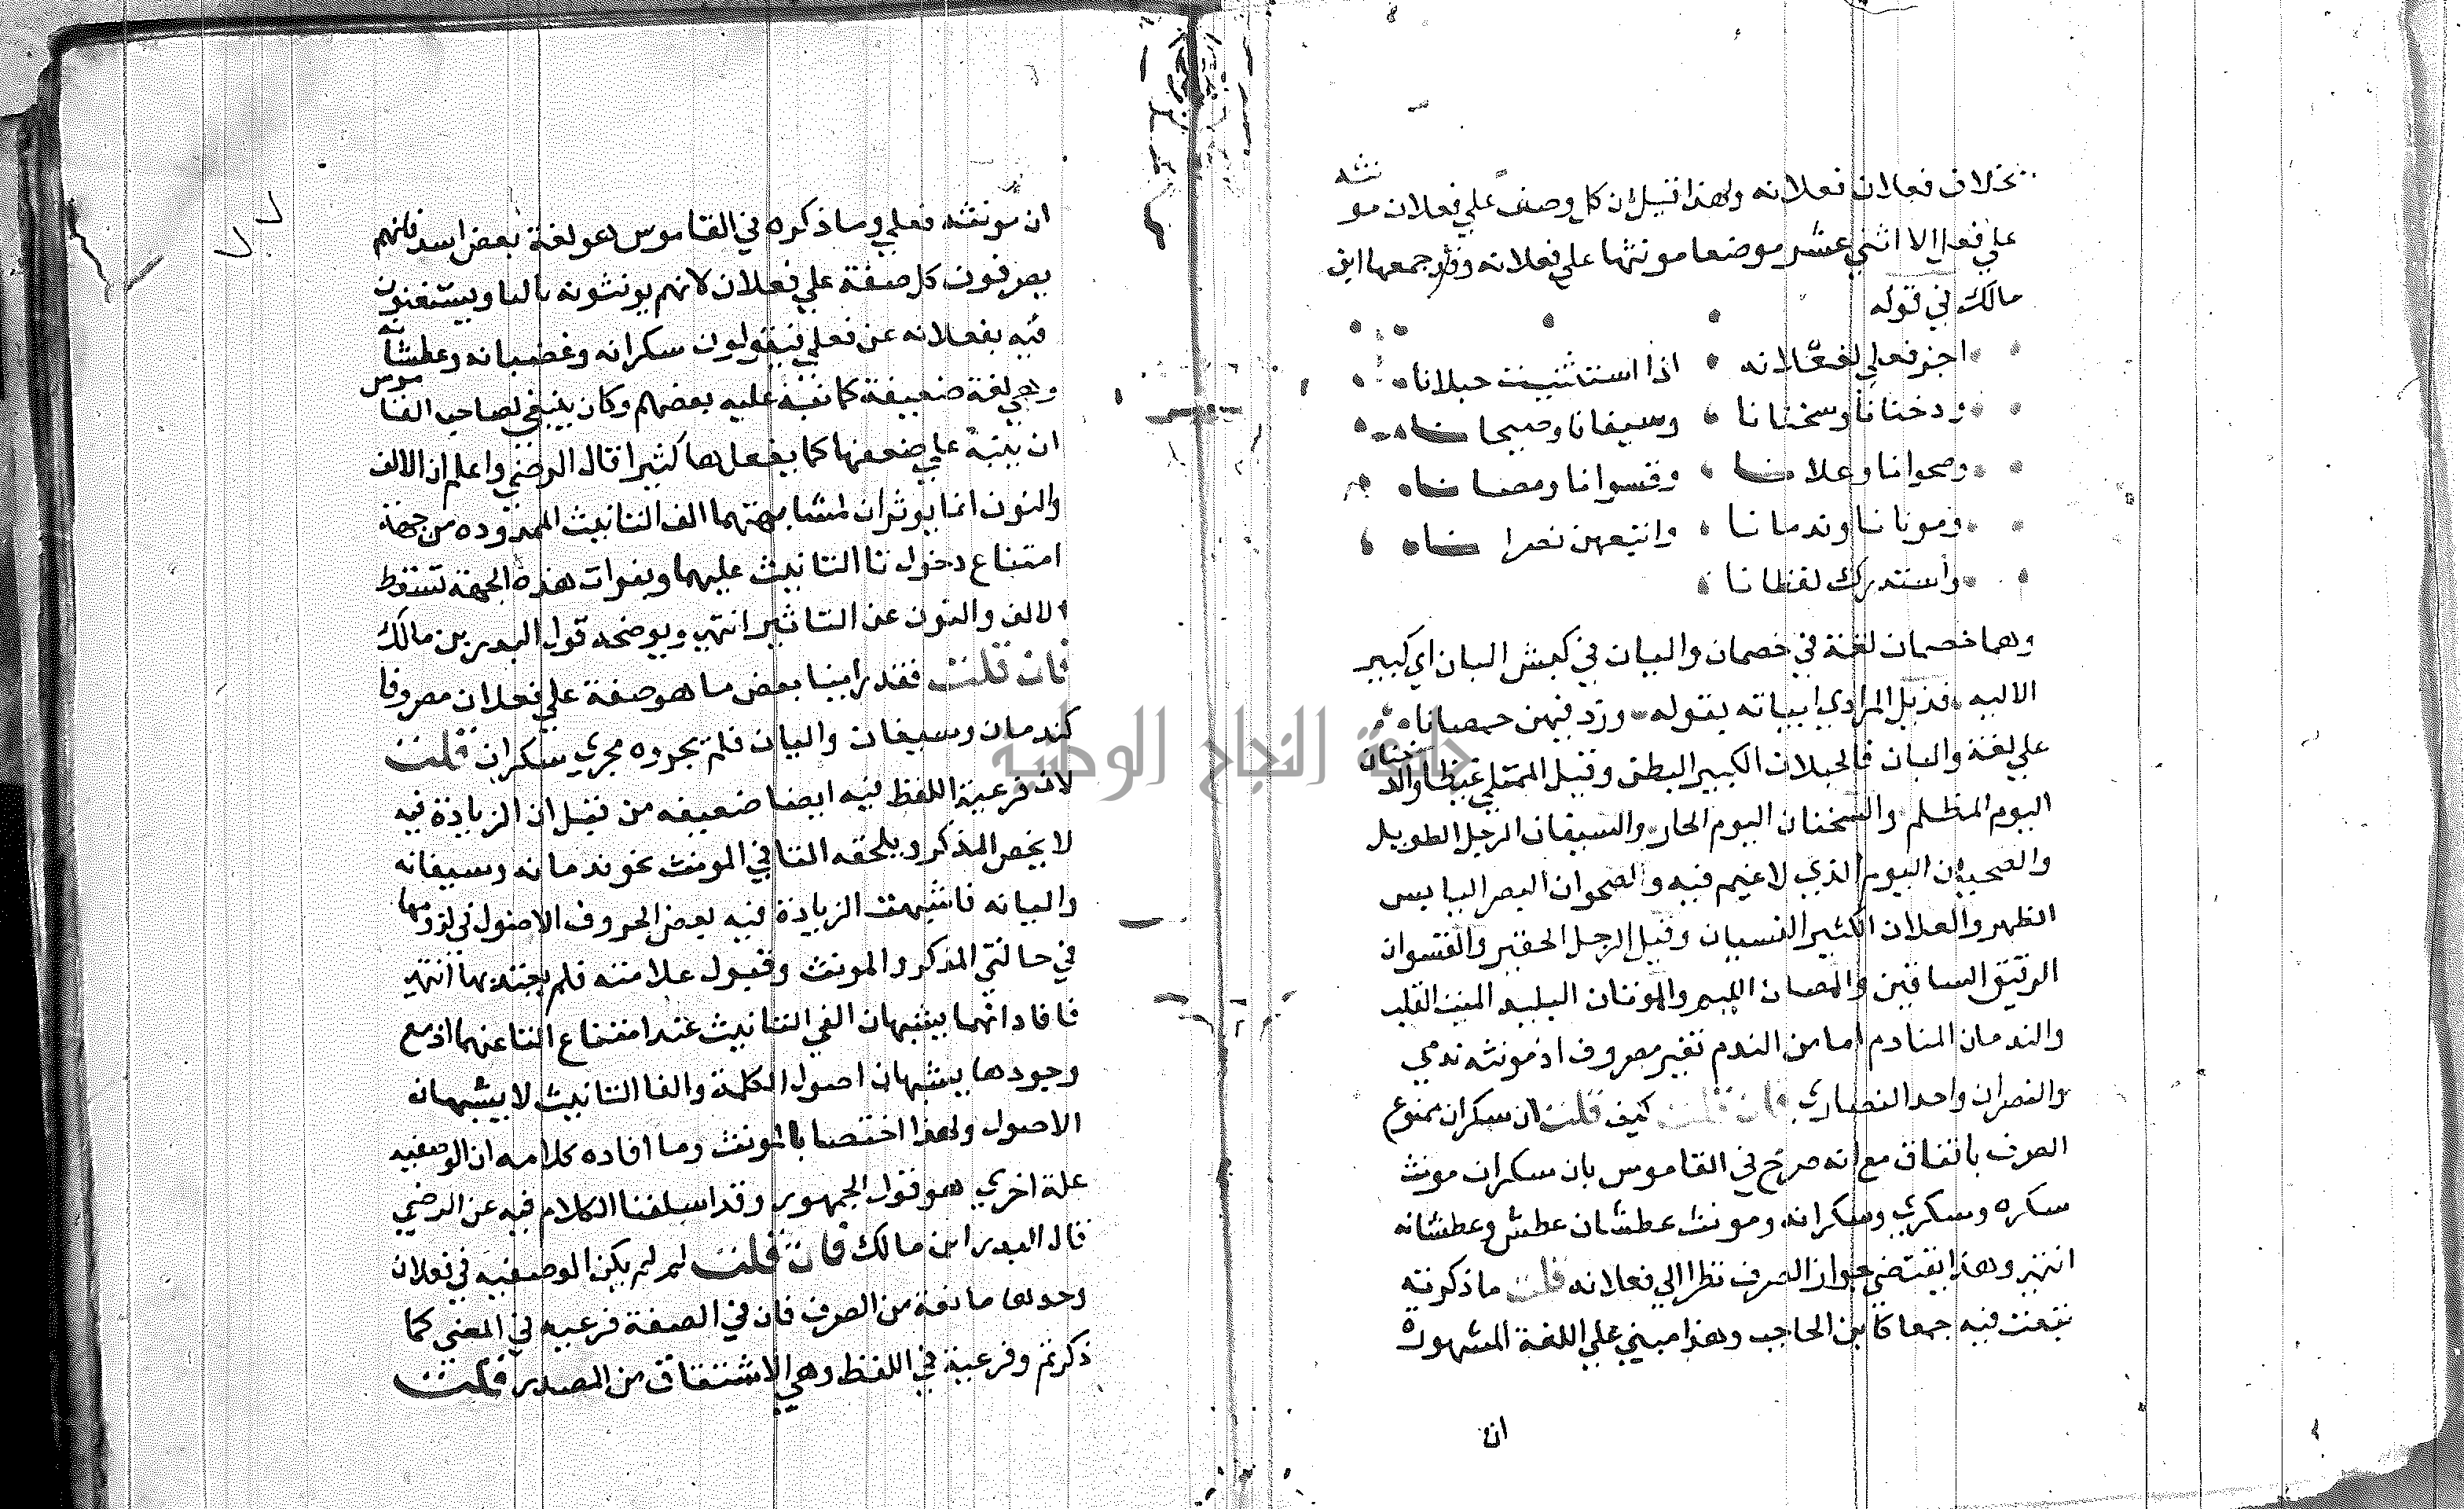 بخلاف فعلان فعلانه ولهذا قيل ان كل وصف علي فعلان مونثه
علي فعلي الا اثني عشر موضعا مونثها علي فعلانه وقد جمعها ابن
مالك في قوله
اجز فعلي لفعلانه اذا استثنيت حبلانا
ودخنانا وسخنانا وسيفانا وصيحانا
وصحوانا وعلانا وقسوانا ومصانا
وموتانا وندمانا واتبعهن نصرانا
واستدرك لفظانا
وهما خمصان لغة في خمصان واليان في كبش اليان اي كبير
الاليه فذيل المرادي ابياته بقوله وزد فيهن خمصانا
علي لغة واليان فالحبلان الكبير البطن وقيل الممتلي غيظا والدخنان
اليوم المظلم والسخنان اليوم الحار والسيفان الرجل الطويل
والصحيان اليوم الذي لا غيم فيه والصحوان البعير اليابس
الظهر والعلان الكثير النسيان وقيل الرجل الحقير والقسوان
الرقيق الساقين والمصان اللييم والموتان البليد الميت القلب
والندمان المنادم اما من الندم فغير مصروف اذ مونثه ندمي
والنصران واحد النصاري فان قلت كيف قلت ان سكران ممنوع
الصرف باتفاق مع انه صرح في القاموس بان سكران مونث
سكره وسكري وسكرانه ومونث عطشان عطشي وعطشانه
انتهي وهذا يقتضي جواز الصرف نظرا الي فعلانه قلت ما ذكرته
تبعت فيه جمعا كابن الحاجب وهذا مبني علي اللغة المشهورة
ان
ان مونثه فعلي وما ذكره في القاموس هو لغة بعض اسد فانهم
يصرفون كل صفة علي فعلان لانهم يونثونه بالتا ويستغنون
فيه بفعلانه عن فعلي فيقولون سكرانه وغضبانه وعطشانه
وهي لغة ضعيفة كما نبه عليه بعضهم وكان ينبغي لصاحب القاموس
ان ينبه علي ضعفها كما يفعل هنا كثيرا قال الرضي واعلم ان الالف
والنون انما يوثران لمشابهتهما الف التانيث الممدوده من جهة
امتناع دخول تا التانيث عليهما وبفوات هذه الجهة تسقط
الالف والنون عن التاثير انتهي ويوضحه قول البدر بن مالك
فان قلت فقد راينا بعض ما هو صفة علي فعلان مصروفا
كندمان وسيفان واليان فلم يجروه مجري سكران قلت
لان فرعية اللفظ فيه ايضا ضعيفه من قبل ان الزيادة فيه
لا يخص المذكر ويلحقه التا في المونث نحو ندمانه وسيفانه
واليانه فاشبهت الزيادة فيه بعض الحروف الاصول في لزومها
في حالتي المذكر والمونث وقبول علامته فلم يعتد بها انتهي
فافاد انهما يشبهان الفي التانيث عند امتناع التا عنهما اذ مع
وجودها يشبهان اصول الكلمة والفا التانيث لا يشبهان
الاصول ولهذا اختصا بالمونث وما افاده كلامه ان الوصفيه
علة اخري هو قول الجمهور وقد اسلفنا الكلام فيه عن الرضي
قال البدر ابن مالك فان قلت لم لم يكن الوصفيه في فعلان
وحدها مانعة من الصرف فان في الصفة فرعيه في المعني كما
ذكرتم وفرعية في اللفظ وهي الاشتقاق من المصدر قلت
جامعة النجاح الوطنية